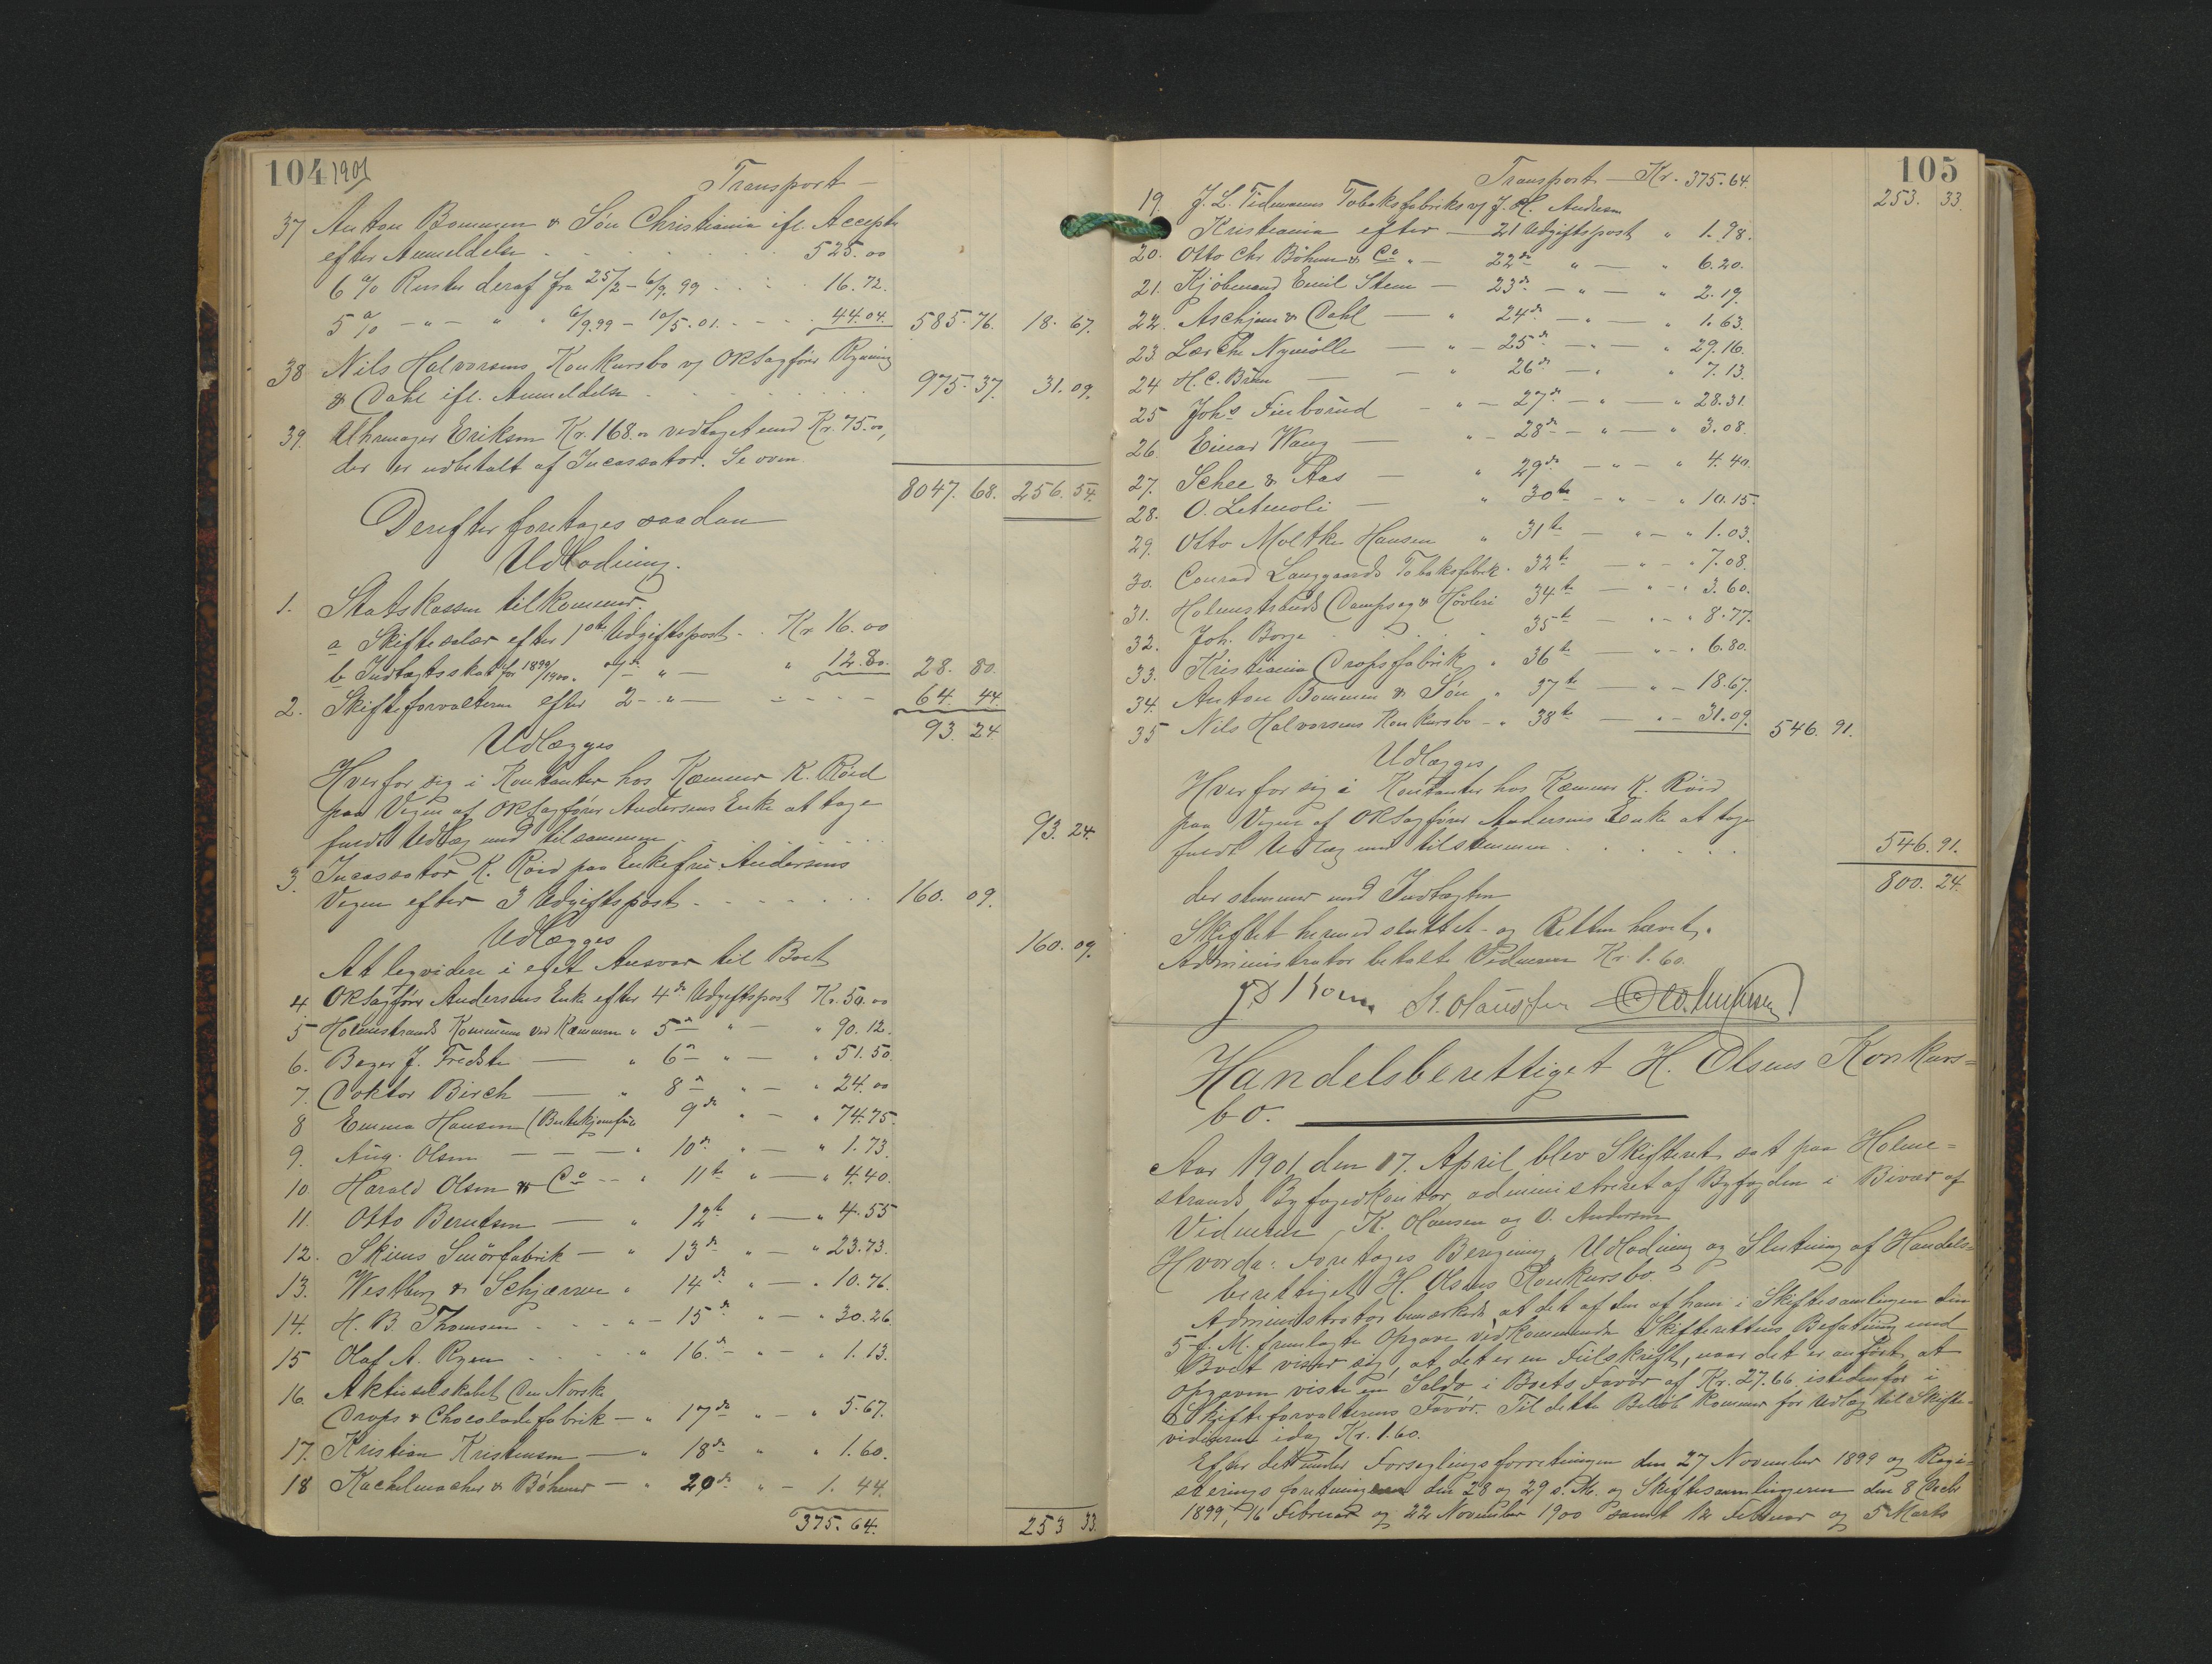 104 1901
Transport —
37 Anton Bommen & Søn Christiania ifl. Accept
efter Anmeldelse . . . . . . 525.00
6 % Renter deraf fra 25/2 – 6/9. 99 . . . 16.72.
5 % – " – " " 6/9.99 – 10/5.01. – – . 44.04. 585.76. 18.67.
38 Nils Halvorsens Konkursbo v/ ORSagfører Ryning
& Dahl ifl. Anmeldelse . . . . . . 975.37. 31.09.
39. Uhrmager Eriksen Kr. 168.00 vedtaget med Kr. 75.00,
der er udbetalt af Incassator. Se oven.
8047.68. 256.54.
Derefter foretages saadan
Udlodning.
1. Statskassen tilkommer.
a Skiftesalær efter 1ste Udgiftspost . . Kr 16.00
b Indtægtsskat for 1899/1900. " 1ste " — " 12.80. 28.80.
2. Skifteforvalteren efter 2 – " — – – – 64.44.
93.24
Udlægges
Hver for sig i Kontanter hos Kæmner K. Röed
paa Vegne af ORSagfører Andersens Enke at tage
fuldt Udlæg med tilsammen . . . . . 93.24.
3. Incassator K. Röed paa Enkefru Andersens
Vegne efter 3 Udgiftspost . . . . . . 160.09.
Udlægges
At leqvidere i eget Ansvar til Boet 160.09.
4 ORSagfører Andersens Enke efter 4de Udgiftspost Kr. 50.00
5 Holmestrands Kommune ved Kæmneren " 5te " — " 90.12.
6. Bager J. Fredste — " 6te " — " 51.50
7. Doktor Birch — " 8de " — " 24.00
8 Emma Hansen (Butikjomfru 9de " — " 74.75.
9. Aug. Olsen — — — " 10de " — " 1.73.
10 Harald Olsen & Co – – " 11te " — " 4.40.
11. Otto Berntsen — " 12te " — " 4.55
12. Skiens Smörfabrik — " 13de " — " 23.73.
13. Westberg & Schjærven " 14de " — " 10.76.
14. H. B. Thomsen . . . " – 15de " — " 30.26
15 Olaf A. Ryen . . . . " 16de – " – " 1.13.
16 Aktieselskabet Den Norske
Drops & Chocoladefabrik – " 17de " – " 5.67.
17. Kristian Kristensen — " 18de " " 1.60.
18 Kachelmacher & Böhmer — " 20de " – 1.44.
375.64. 253 33.
105
Transport — Kr. 375.64. 253. 33.
19 J. L. Tidemans Tobaksfabriks v/ J. H. Andresen
Kristiania efter — 21 Udgiftspost " 1.98.
20. Otto Chr Böhmer & Co " – 22de " — " 6.20.
21. Kjöbmand Emil Steen — 23de – " – " 2.19.
22. Aschjem & Dahl — " 24de – " — " 1.63.
23 Lærche Nymölle — " – 25de – " – " 29.16.
24 H. C. Bruun — – " 26de – " " 7.13.
25 Johs Finborud – " – 27de – " — " 28.31.
26. Einar Wang — " – 28de – " – " 3.08.
27. Schee & Aas — " 29de – " – " 4.40.
28. O. Letmoli — " 30te – " – " 10.15.
29. Otto Moltke Hansen " 31te — " – " 1.03.
30. Conrad Langgaards Tobaksfabrik . 32te — " – " 7.08.
31. Holmestrands Dampsag & Høvleri 34te — " – " 3.60.
32. Joh. Borge . . . . . 35te — " – " 8.77.
33. Kristiania Dropsfabrik " 36te — " – " 6.80.
34. Anton Bommen & Søn " 37te — " – 18.67.
35 Nils Halvorsens Konkursbo – " 38te — " – 31.09. 546.91.
Udlægges
Hver for sig i Kontanter hos Kæmner K. Röed
paa Vegne af ORSagfører Andersens Enke at tage
fuldt Udlæg med tilsammen . . . . . 546.91.
800.24.
der stemmer med Indtægten
Skiftet hermed sluttet og Retten hævet.
Administrator betalte Vidnerne Kr. 1.60.
K. Olaussen
Handelsberettiget H. Olsens Konkurs=
bo.
Aar 1901 den 17. April blev Skifteret sat paa Holme=
strands Byfogedkontor administreret af Byfogden i Bivær af
Vidnerne K. Olausen og O. Andersen
Hvorda: Foretages Beregning, Udlodning og Slutning af Handels=
berettiget H. Olsens Konkursbo.
Administrator bemærkede at det af den af ham i Skiftesamlingen den
5 f. M. fremlagte Opgave vedkommende Skifterettens Befatning med
Boet viser sig, at det er en Feilskrift, naar det er anført at
Opgaven viste en Saldo i Boets Favör af Kr. 27.66 istedenfor i
Skifteforvalterens Favör. Til dette Belöb kommer for Udlæg til Skifte=
vidnerne idag Kr. 1.60.
Efter det under Forseglingsforretningen den 27 November 1899 og Regi=
streringsforretningen den 28 og 29 s. M. og Skiftesamlingerne den 8 Decbr
1899, 16 Februar og 22 November 1900 samt 12 Februar og 5 Marts